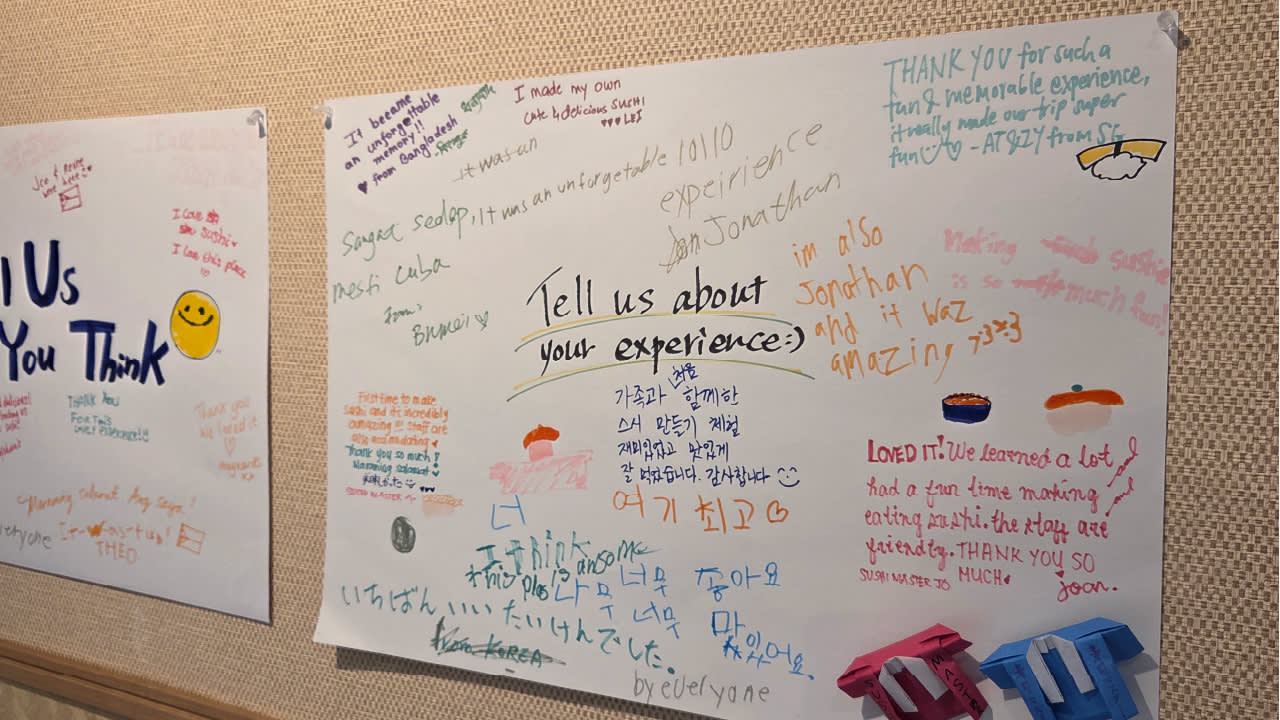 Joe & Rene
were here
I Love
sushi
I love this place
l Us
You Think
THANK YOU
FOR THIS
Thank you
we loved it
Maraming salamat Ang saya!
everyone
It was fun!
THEO
It became
an unforgettable
memory!!
from Bangladesh
I made my own
cute & delicious SUSHI
LEI
THANK YOU for such a
fun & memorable experience,
it really made our trip super
fun - AT&ZY from SG
it was an
Sangat sedap, it was an unforgettable 10/10
expeirience
Jonathan
mesti cuba
from:
Brunei
Tell us about
your experience:)
im also
Jonathan
and it waz
amazing
Making sushie
is so much fun!
처음
가족과 함께한
스시 만들기 체험
재미있었고 맛있게
잘 먹었습니다. 감사합니다
여기 최고
First time to make
Sushi and it's incredibly
amazing!!! Staff are
also accomodating
Thank you so much!
Maraming salamat
SUSHI MASTER
LOVED IT! We learned a lot
had a fun time making
eating sushi. the staff are
friendly. THANK YOU SO
MUCH
SUSHI MASTER JO
Joan.
너
I think
this place
너무 좋아요
너무 맛
있어요.
いちばんいいたいけんでした。
from KOREA
by everyone